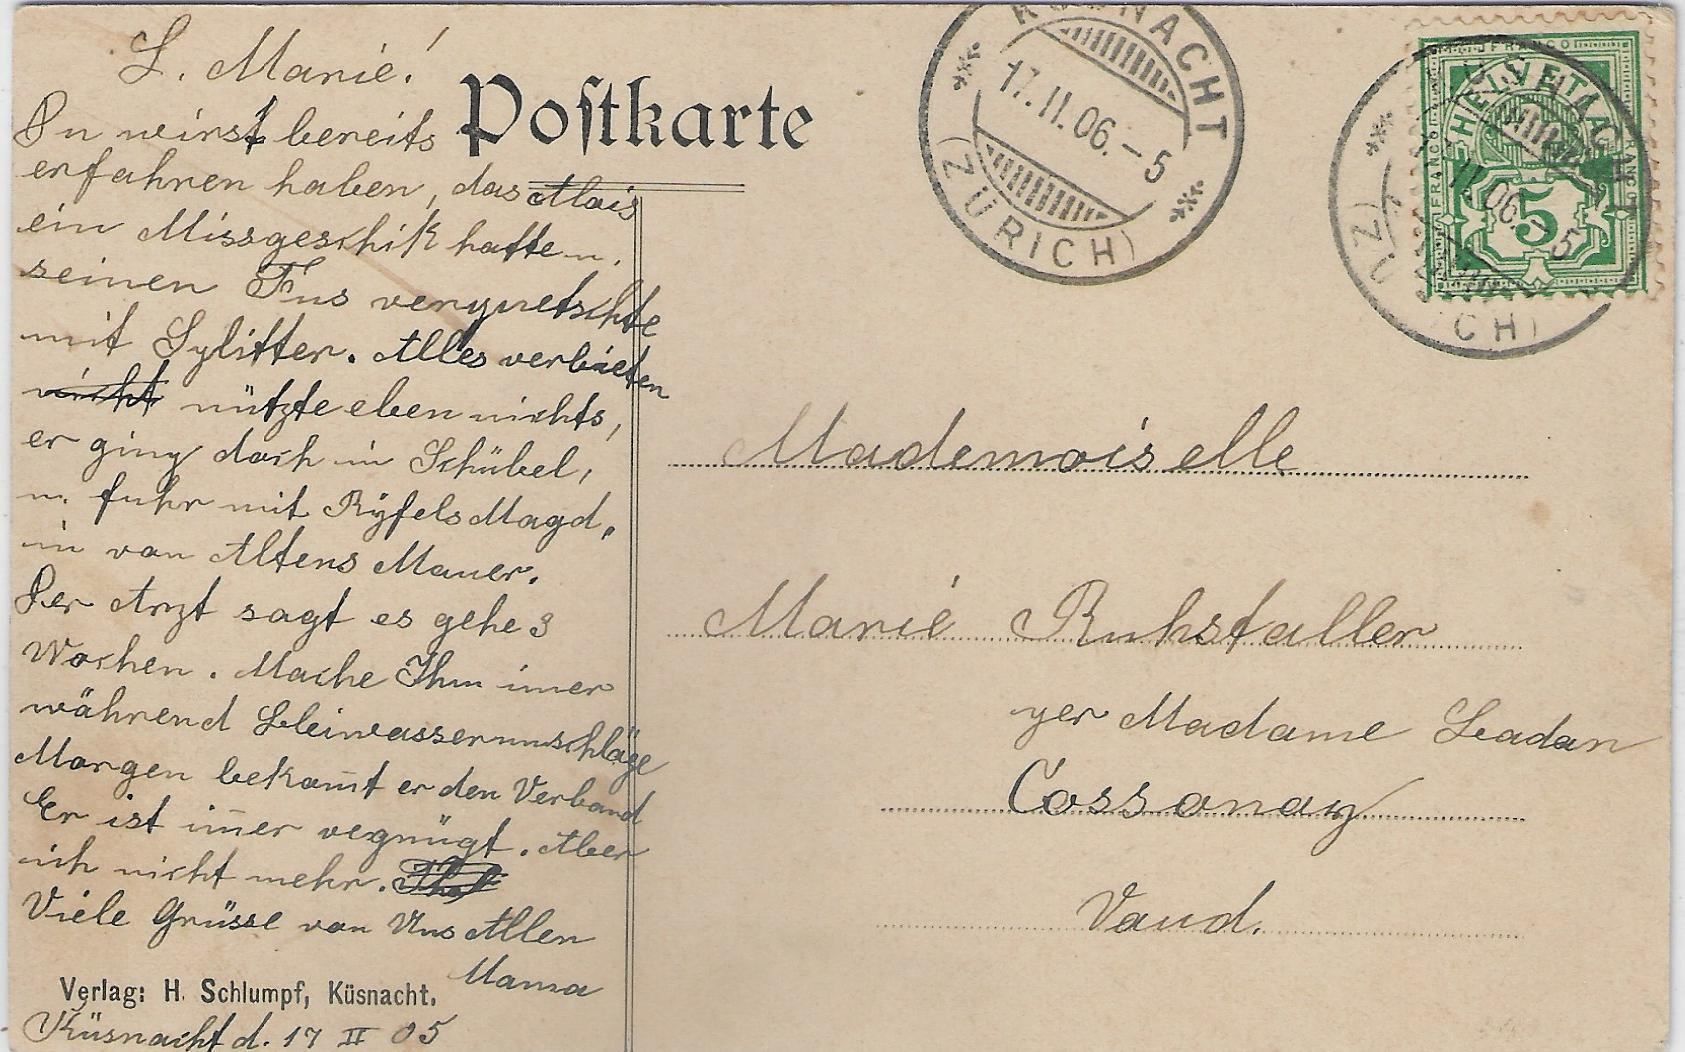 L. Marie!
Du wirst bereits
erfahren haben, das Alois
ein Missgeschik hatte u.
seinen Fus verquetschte
mit Splitter. Alles verbieten
nützte eben nichts,
er ging doch in Schübel,
u. fuhr mit Ryfels Magd,
in von Altens Mauer.
Der Arzt sagt es gehe 3
Wochen. Mache Ihm imer
während Bleiwasserumschläge
Morgen bekom̅t er den Verband
Er ist im̅er vegnügt. Aber
ich nicht mehr.
Viele Grüsse von Uns Allen
Mama
Küsnacht d. 17 II 05
Postkarte
Verlag: H. Schlumpf, Küsnacht.
KÜSNACHT
17.II.06.-5
(ZÜRICH)
KÜSNACHT
17.II.06.-5
(ZÜRICH)
FRANCO
HELVETIA
FRANCO
FRANCO
5
Mademoiselle
Marie Ruhstaller
per Madame Ladan
Cossonay
Vaud.